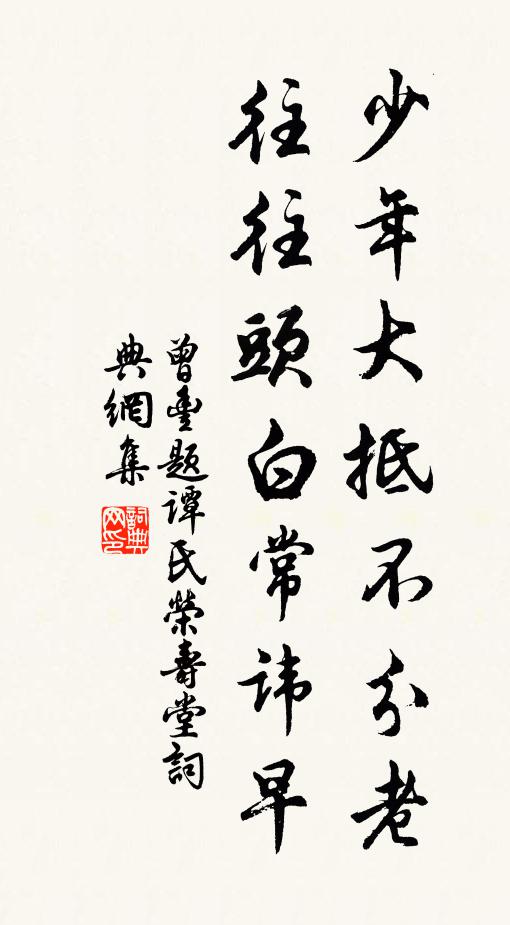 少年大抵不分老
往往頭白常讳早
曾豊題谭氏榮壽堂詞
典網集
詞典网印